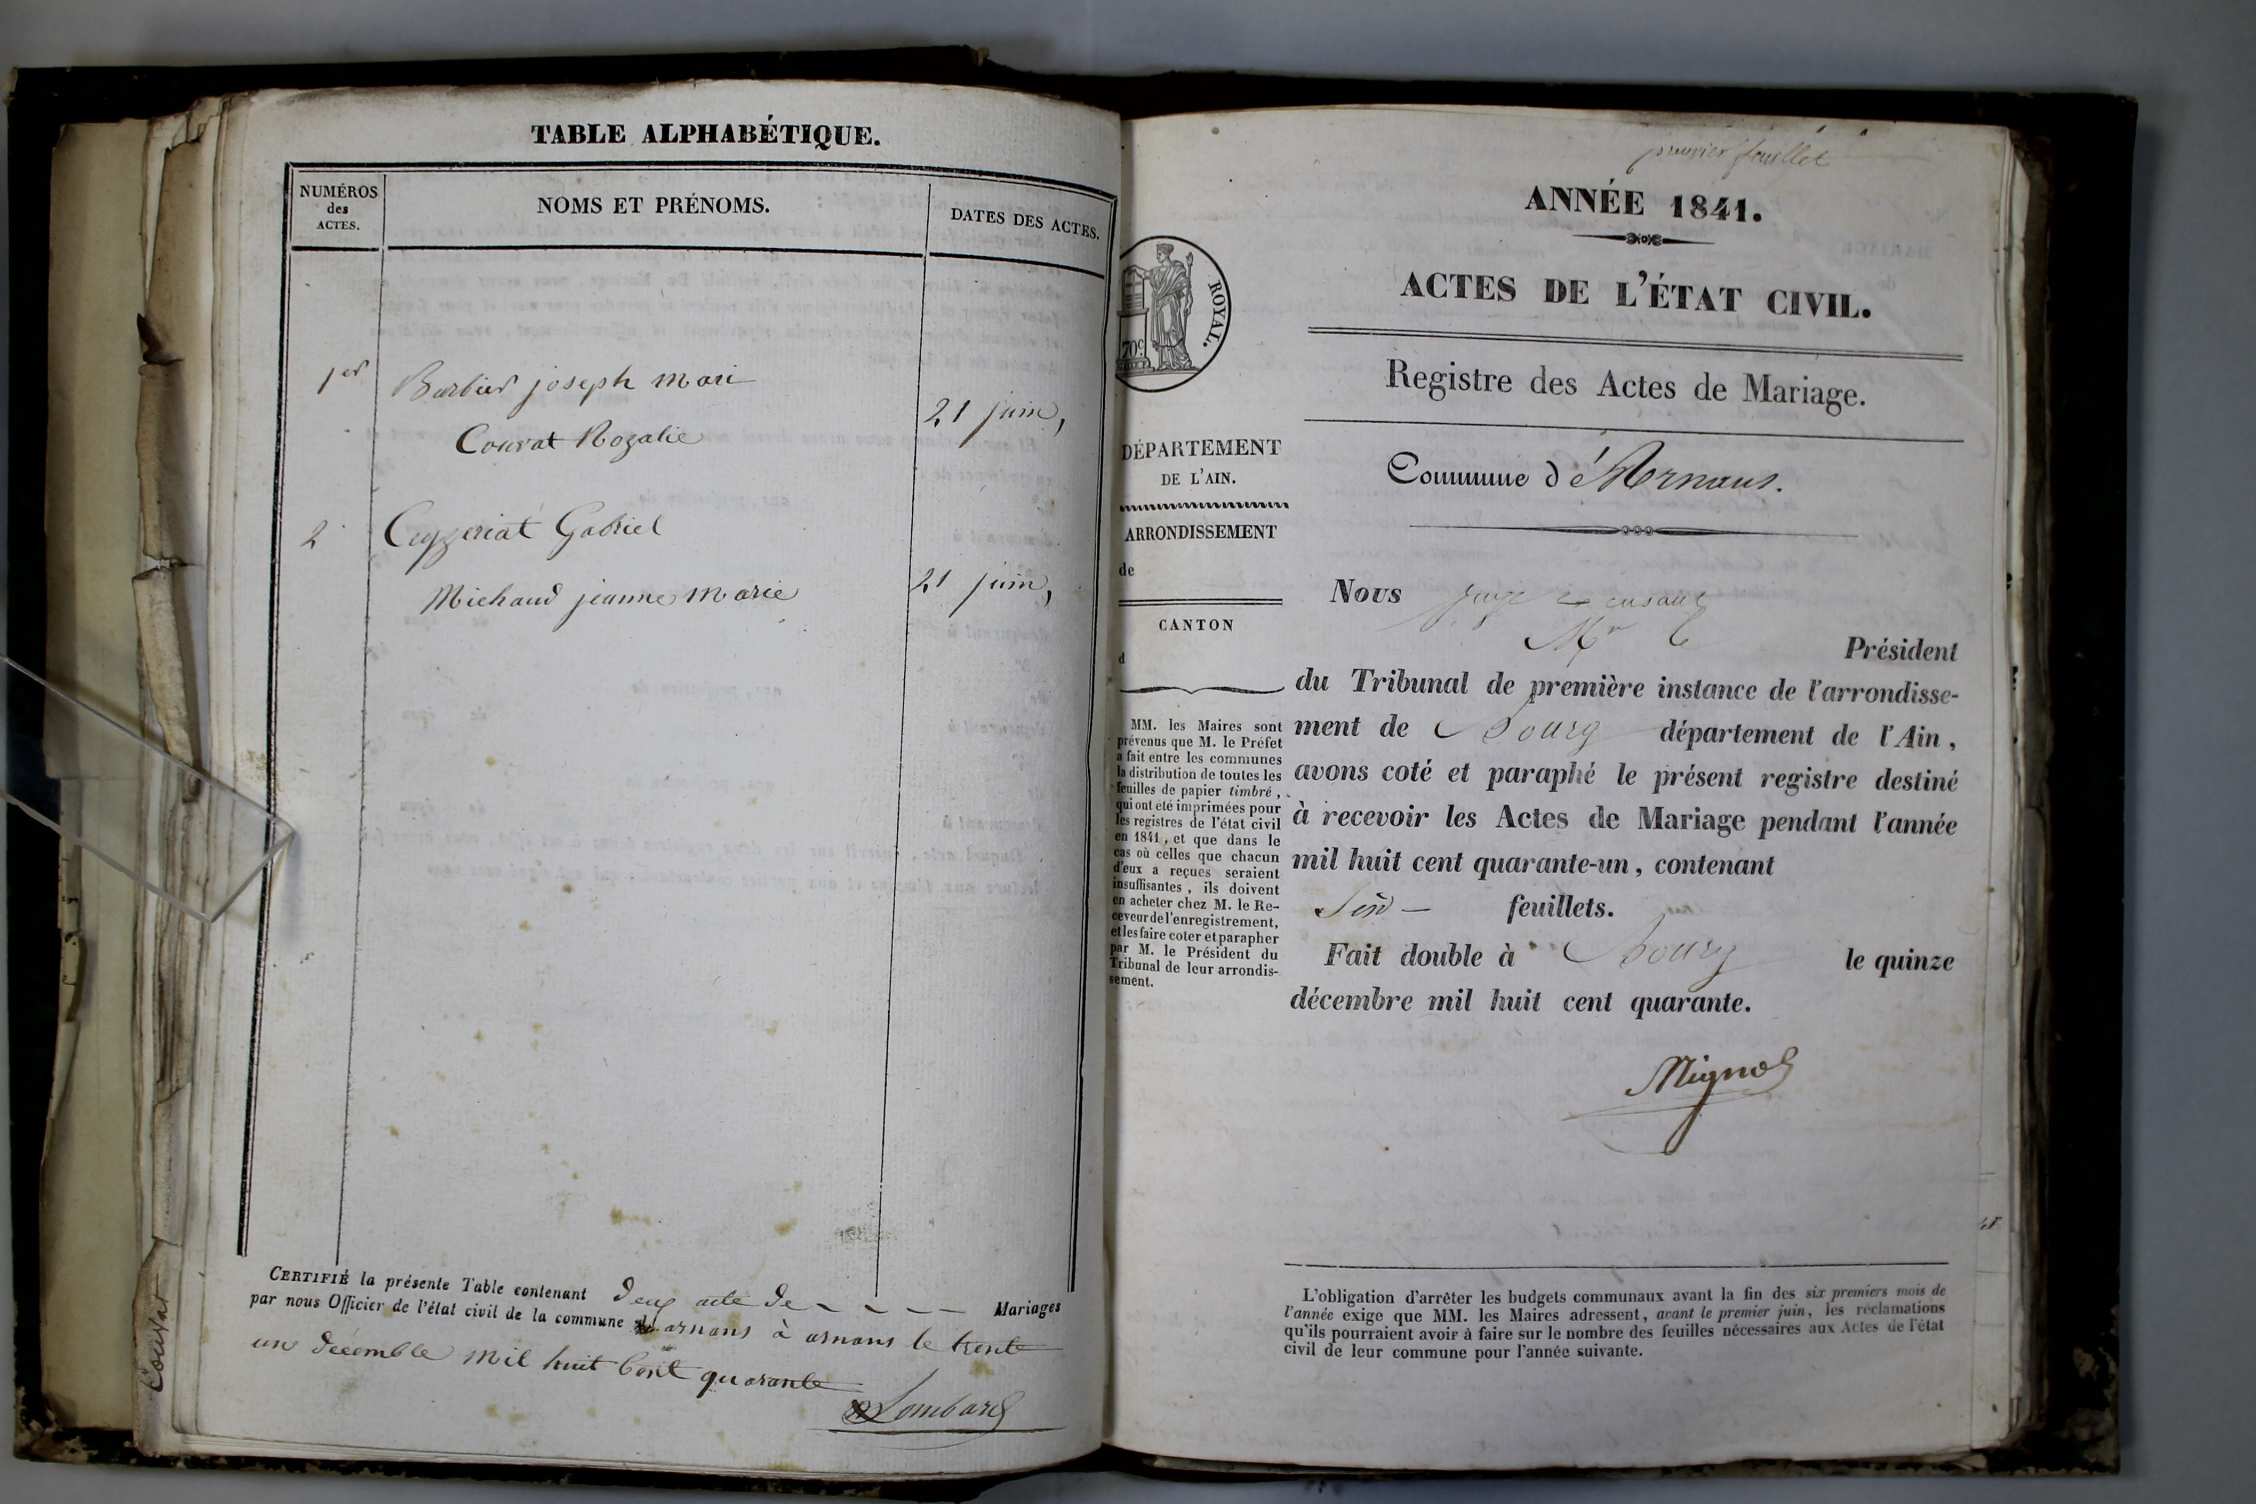 TABLE ALPHABÉTIQUE.
NUMÉROS
des
ACTES.
NOMS ET PRÉNOMS.
DATES DES ACTES.
1er
Barbier joseph Mari
21 juin,
Couvat Rozalie
2
Ceyzeriat Gabriel
21 juin,
Michaud jeanne Marie
CERTIFIÉ la présente Table contenant deux acte de Mariages
par nous Officier de l'état civil de la commune d'arnans à arnans le trente
un décemble mil huit Cent quarante
Lombard
Couvat
premier feuillet
ANNÉE 1841.
ACTES DE L'ÉTAT CIVIL.
Registre des Actes de Mariage.
Commune d'Arnans.
ROYAL.
70c
DÉPARTEMENT
DE L'AIN.
ARRONDISSEMENT
de
CANTON
d
MM. les Maires sont
prévenus que M. le Préfet
a fait entre les communes
la distribution de toutes les
feuilles de papier timbré,
qui ont été imprimées pour
les registres de l'état civil
en 1841, et que dans le
cas où celles que chacun
d'eux a reçues seraient
insuffisantes, ils doivent
en acheter chez M. le Re-
ceveur de l'enregistrement,
et les faire coter et parapher
par M. le Président du
Tribunal de leur arrondis-
sement.
Nous juge
Mr Président
du Tribunal de première instance de l'arrondisse-
ment de Bourg département de l'Ain,
avons coté et paraphé le présent registre destiné
à recevoir les Actes de Mariage pendant l'année
mil huit cent quarante-un, contenant
feuillets.
Fait double à Bourg le quinze
décembre mil huit cent quarante.
Mignot
L'obligation d'arrêter les budgets communaux avant la fin des six premiers mois de
l'année exige que MM. les Maires adressent, avant le premier juin, les réclamations
qu'ils pourraient avoir à faire sur le nombre des feuilles nécessaires aux Actes de l'état
civil de leur commune pour l'année suivante.